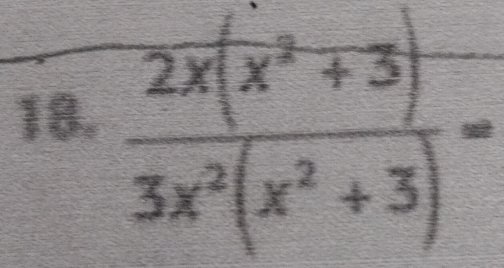 18. \frac{2x(x^2 + 3)}{3x^2(x^2 + 3)} =